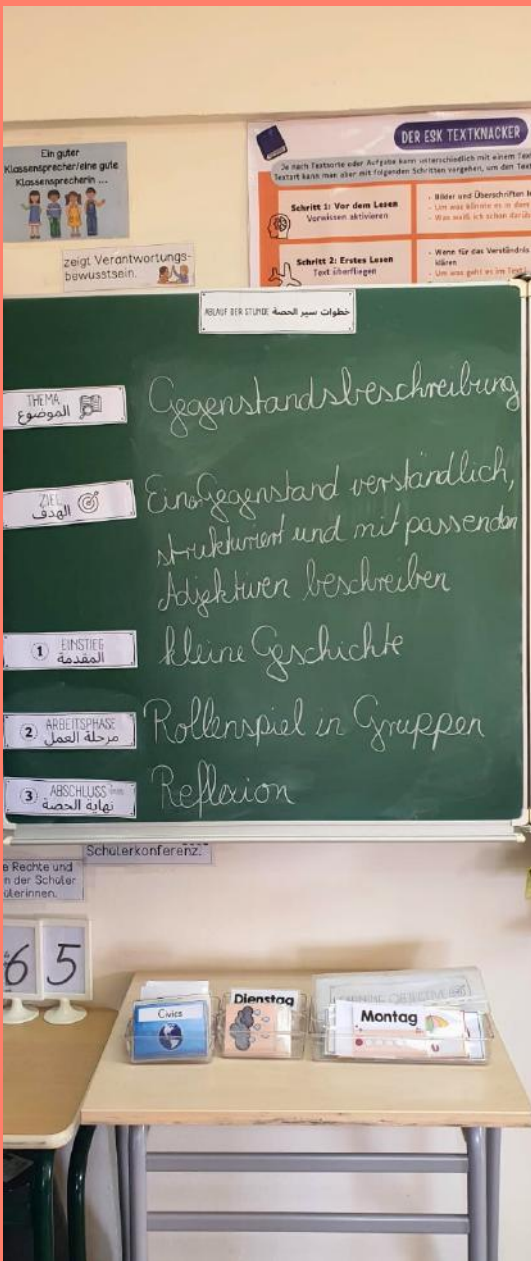 Ein guter
Klassensprecher/eine gute
Klassensprecherin ...
zeigt Verantwortungs-
bewusstsein.
DER ESK TEXTKNACKER
Je nach Textsorte oder Aufgabe kann unterschiedlich mit einem
Textart kann man aber mit folgenden Schritten vorgehen, um den
Schritt 1: Vor dem Lesen
Vorwissen aktivieren
- Bilder und Überschriften
- Um was könnte es in dem
- Was weiß ich schon
Schritt 2: Erstes Lesen
Text überfliegen
- Wenn für das Verständnis
klären
- Um was geht es im
ABLAUF DER STUNDE خطوات سير الحصة
THEMA
الموضوع
Gegenstandsbeschreibung
ZIEL
الهدف
Einen Gegenstand verständlich,
strukturiert und mit passenden
Adjektiven beschreiben
1 EINSTIEG
المقدمة
kleine Geschichte
2 ARBEITSPHASE
مرحلة العمل
Rollenspiel in Gruppen
3 ABSCHLUSS
نهاية الحصة
Reflexion
Schülerkonferenz.
e Rechte und
n der Schüler
ülerinnen.
6 5
Civics
Dienstag
Montag